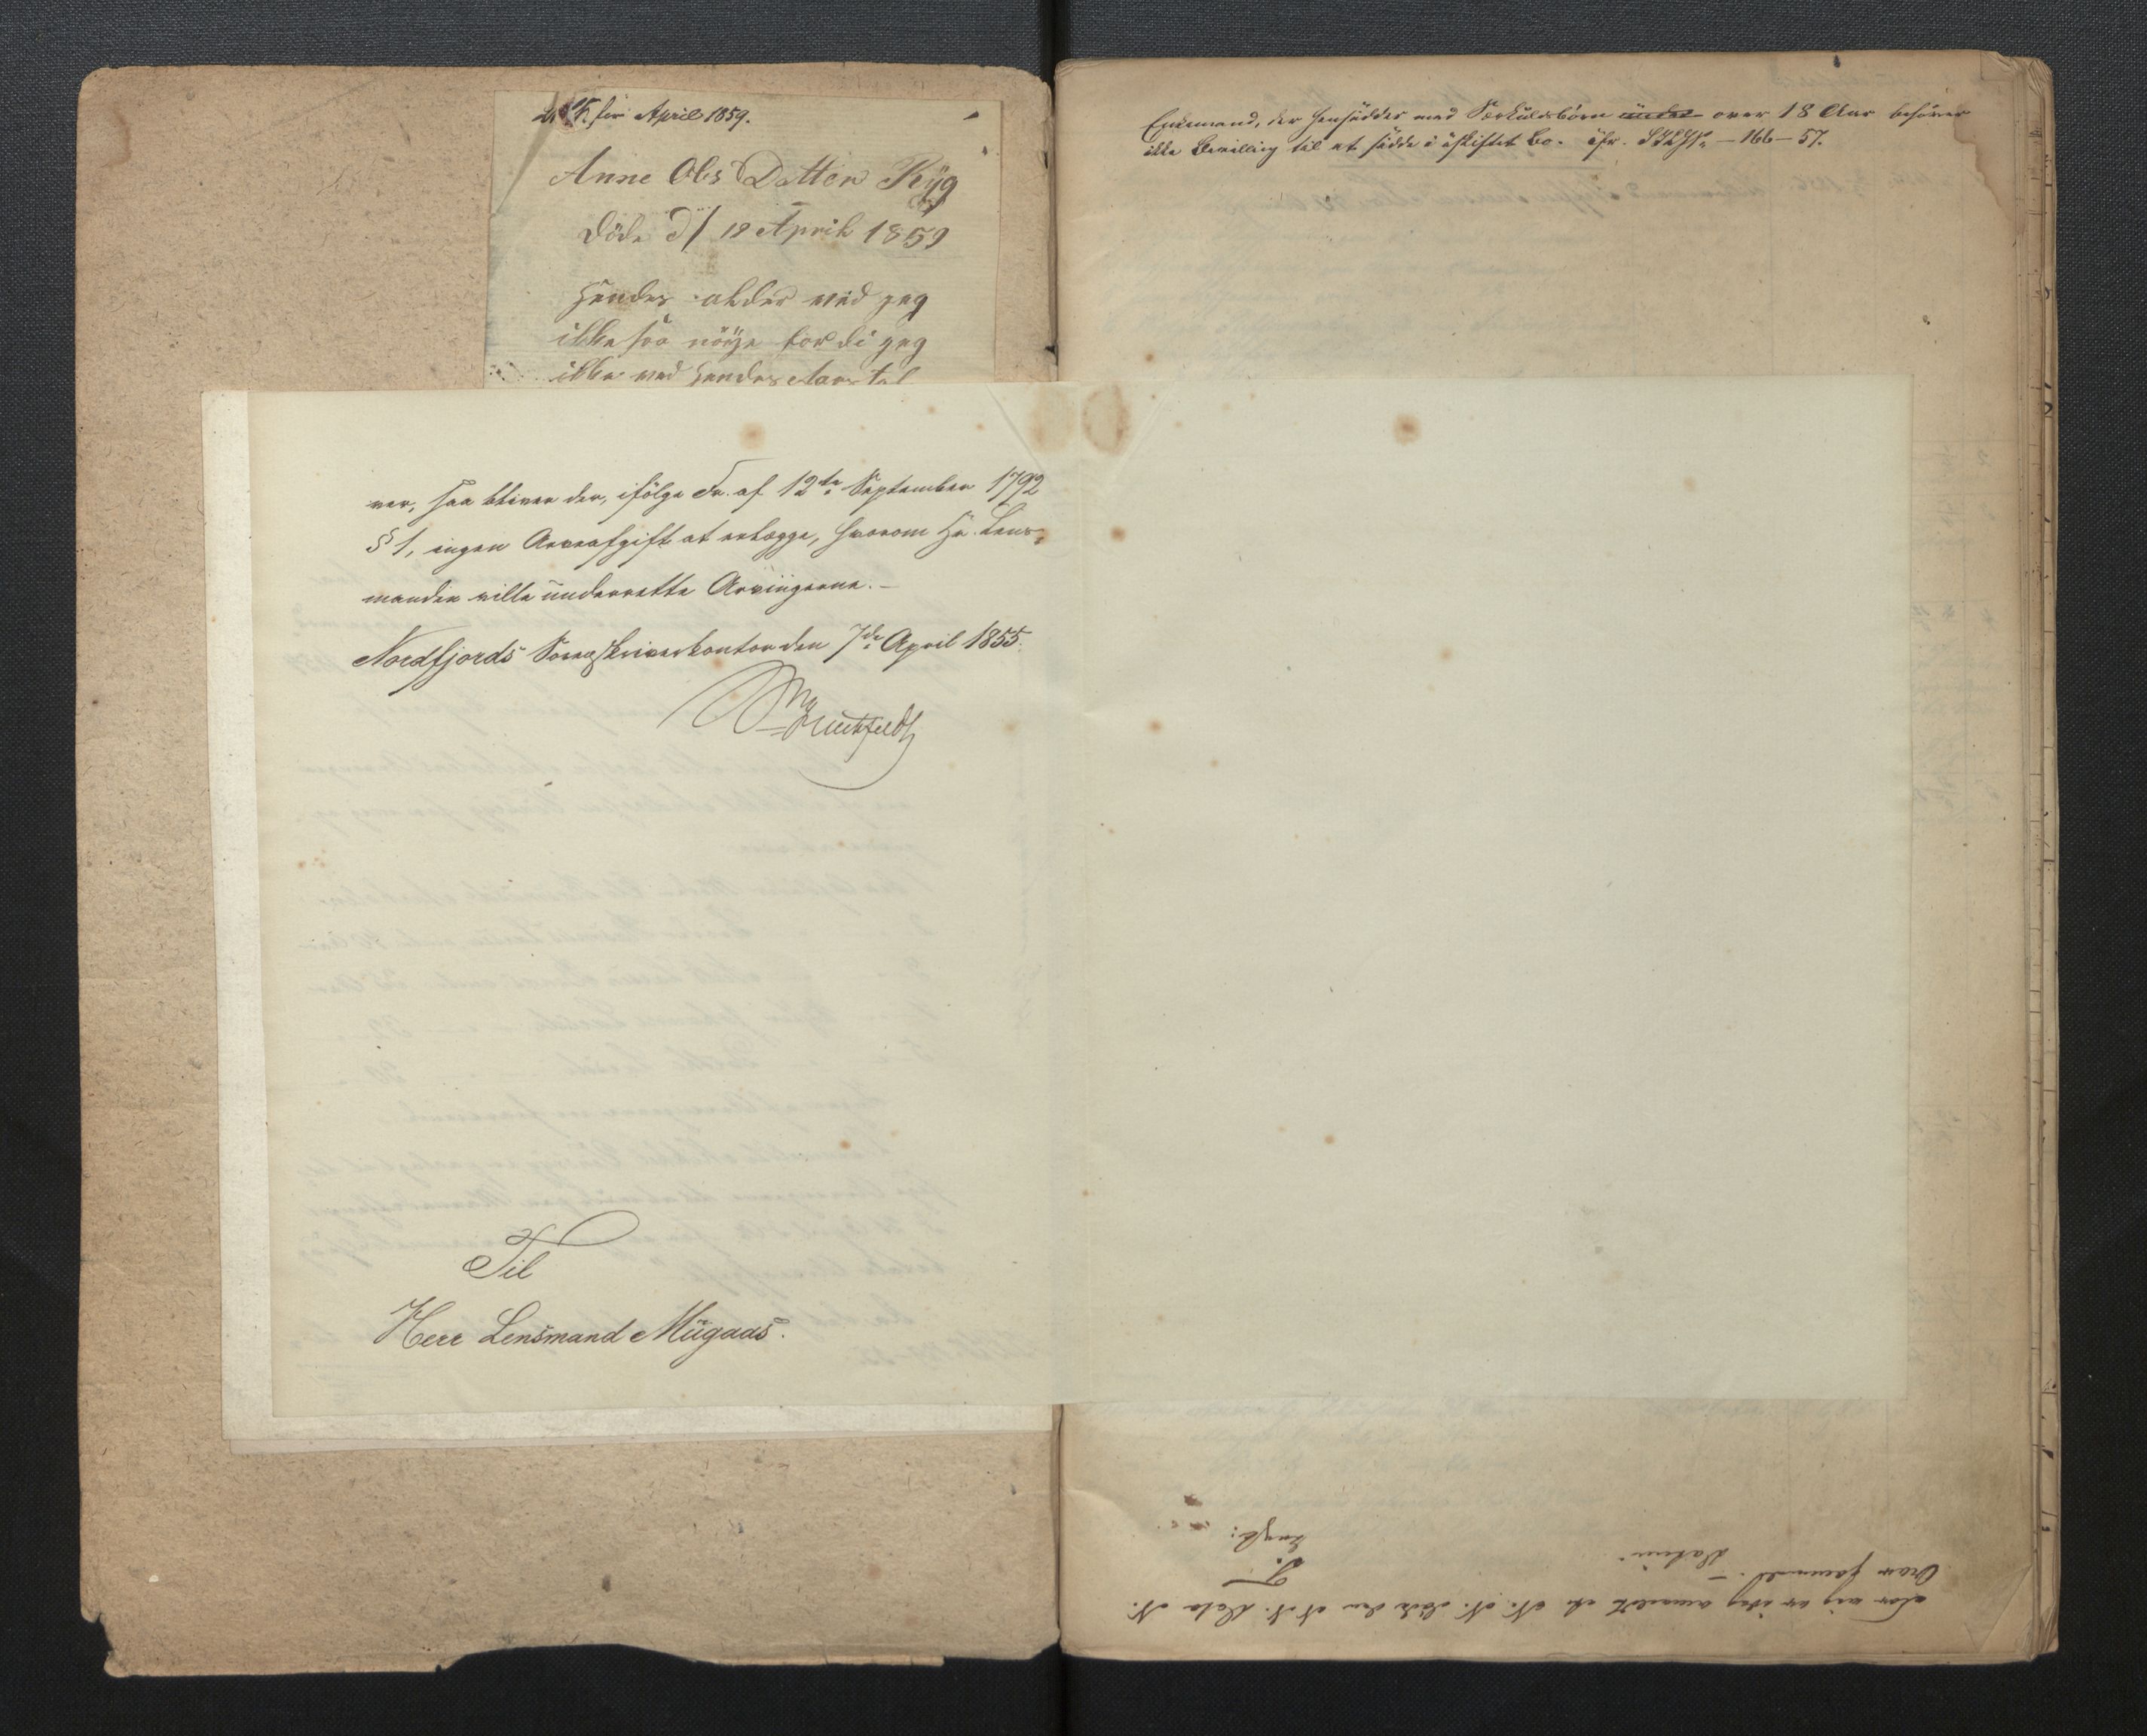 for April 1859.
Anne Ols Datter Ryg
döde d/ 18 April 1859
Hendes alder ved jeg
ikke saa nöÿe fordi jeg
ikke ved hendes Aarstal
ver, saa bliver der, ifölge Fr. af 12te September 1792
§ 1, ingen Arveafgift at erlægge, hvorom Hr. Lens-
manden ville underrette Arvingerne. –
Nordfjords Sorenskriverkontor den 7de April 1855.
Til
Herr Lensmand Mügaas.
Enkemand, der hensidder med Særkuldsbörn under over 18 Aar behöver
ikke Bevilling til at sidde i uskiftet Bo. cfr. – 166 – 57.
For mig er idag anmeldt at N. N. döde den N. N. Dato N.
Datum